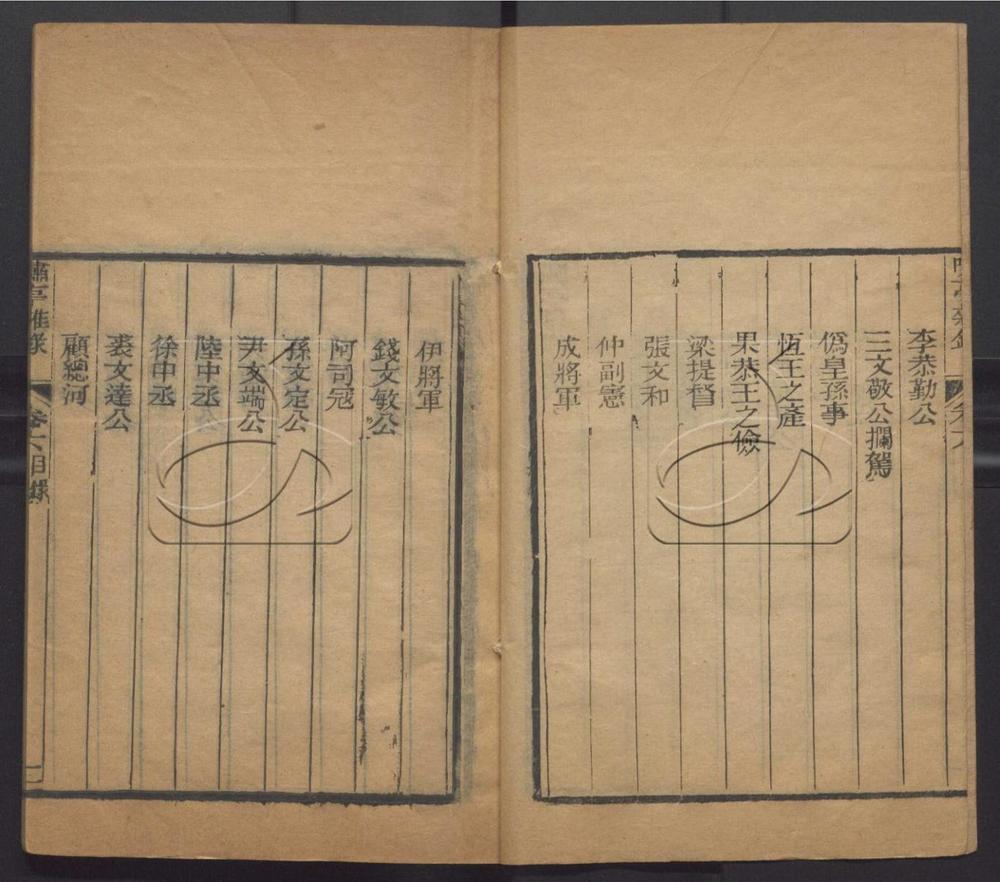 李恭勤公
三文敬公攔駕
僞皇孫事
恆王之產
果恭王之儉
梁提督
張文和
仲副憲
成將軍
伊將軍
錢文敏公
阿司冦
孫文定公
尹文端公
陸中丞
徐中丞
裘文達公
顧總河
嘯亭雜錄
卷六目錄